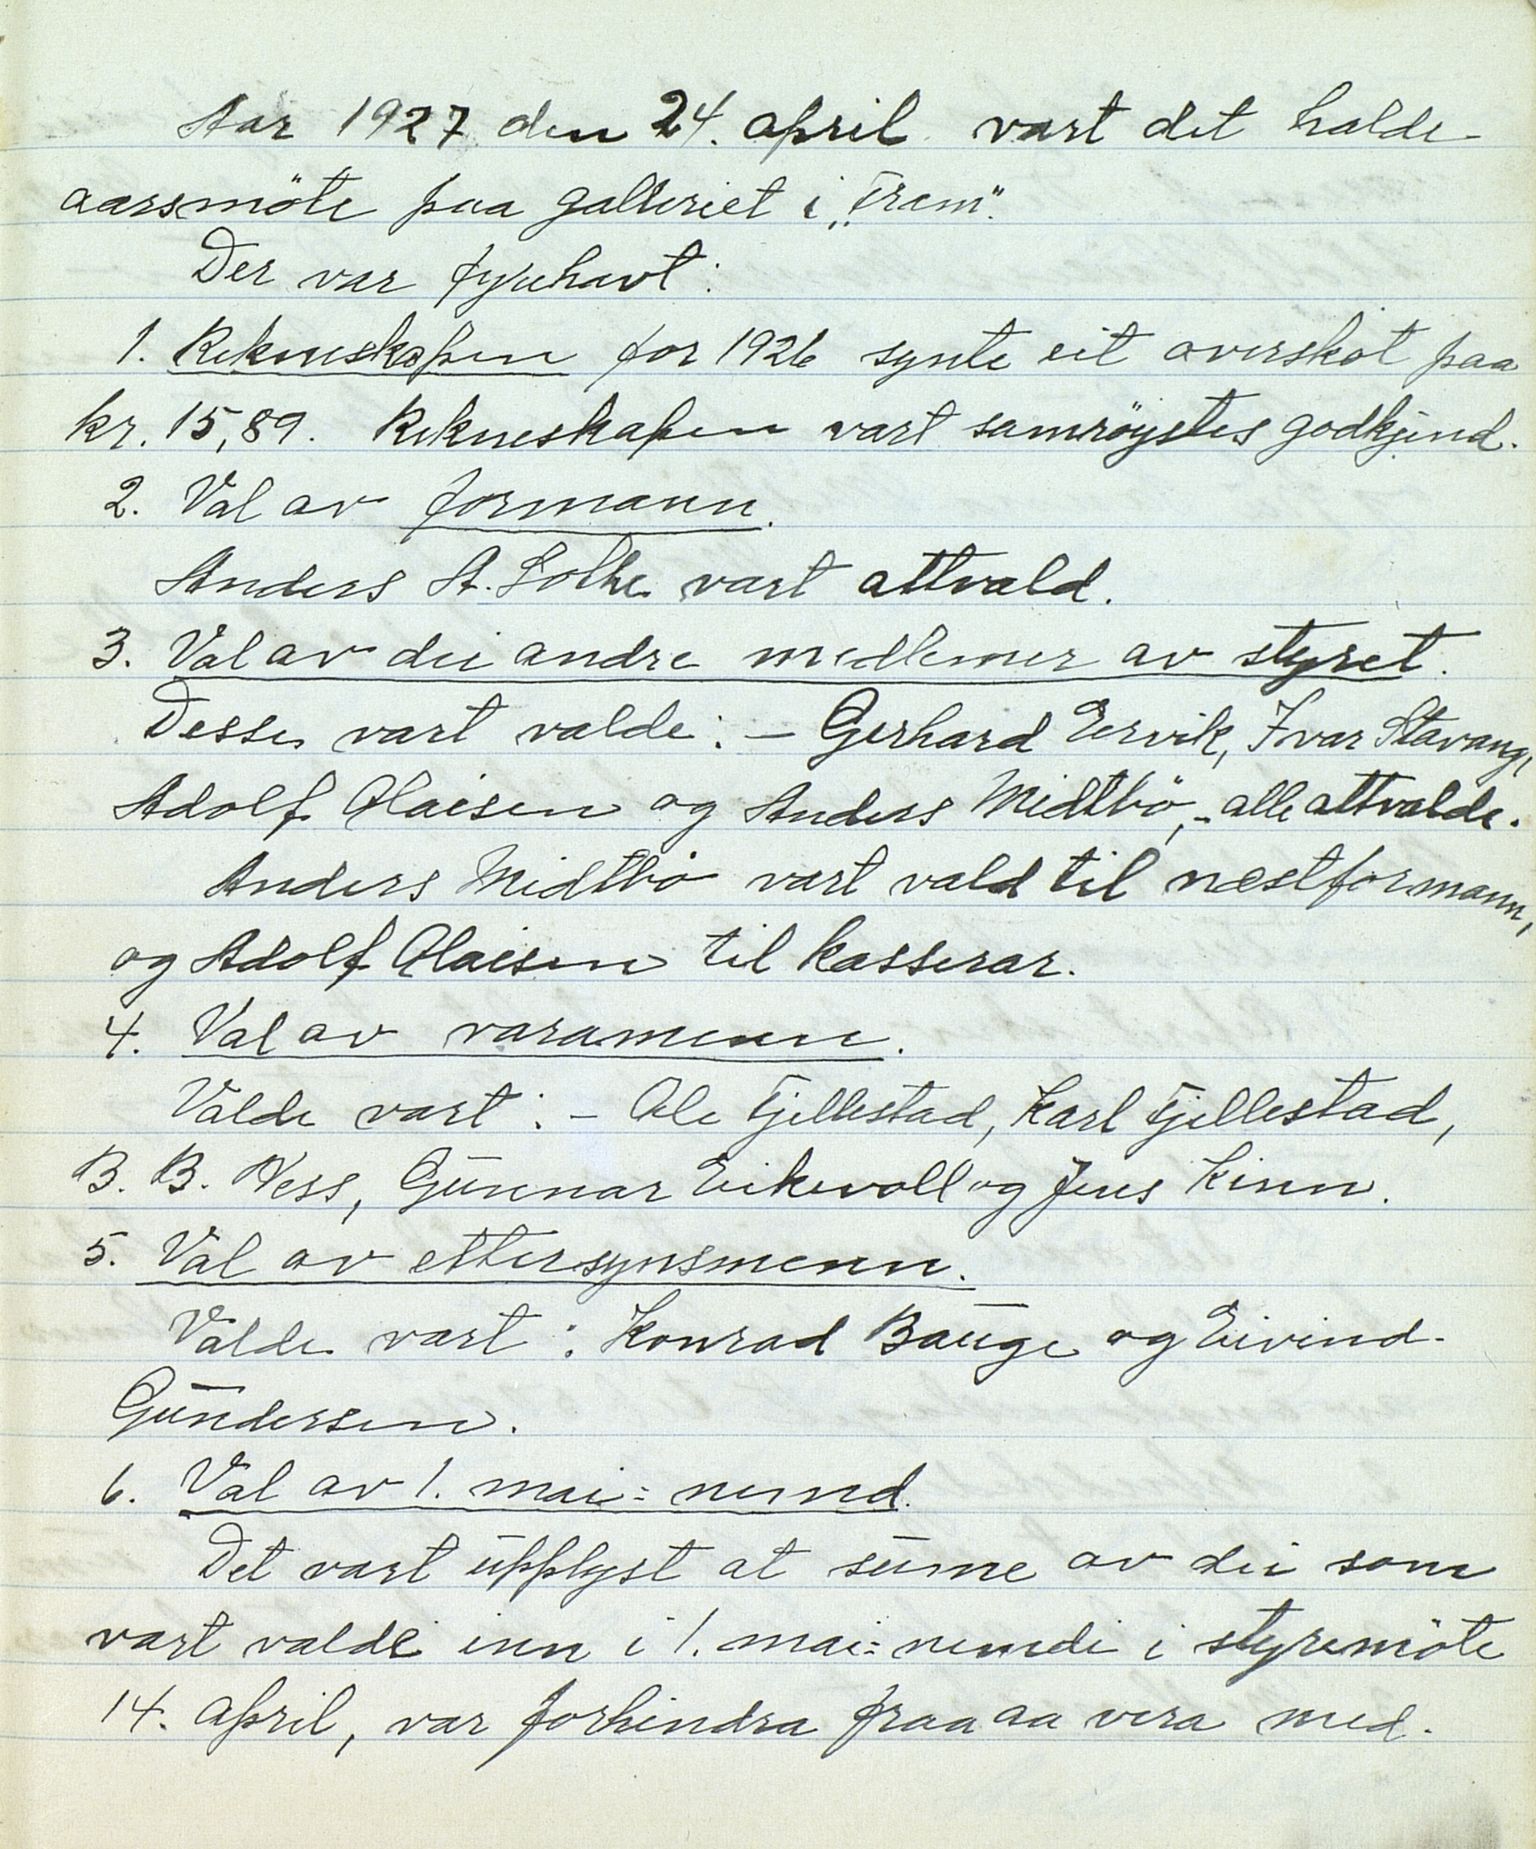 Aar 1927 den 24. april vart det halde
aarsmöte paa galleriet i „Fram“.
Der var fyrehavt:
1. Rekneskapen for 1926 synte eit overskot paa
kr. 15,89. Rekneskapen vart samröystes godkjend.
2. Val av formann.
Anders A. Solhe vart attvald.
3. Val av dei andre medlemer av styret.
Desse vart valde: – Gerhard Eervik, Ivar Stavang,
Adolf Olaisen og Anders Midtbö, – alle attvalde.
Anders Midtbö vart vald til næstformann,
og Adolf Olaisen til kasserar.
4. Val av varamenn.
Valde vart: – Ole Fjellestad, Karl Fjellestad,
B. B. Ness, Gunnar Eikevoll og Jens Kinn.
5. Val av ettersynsmenn.
Valde vart: Konrad Bauge og Eivind
Gundersen.
6. Val av 1. mai-nemnd.
Det vart upplyst at sume av dei som
vart valde inn i 1. mai-nemdi i styremöte
14. april, var forhindra fraa aa vera med.